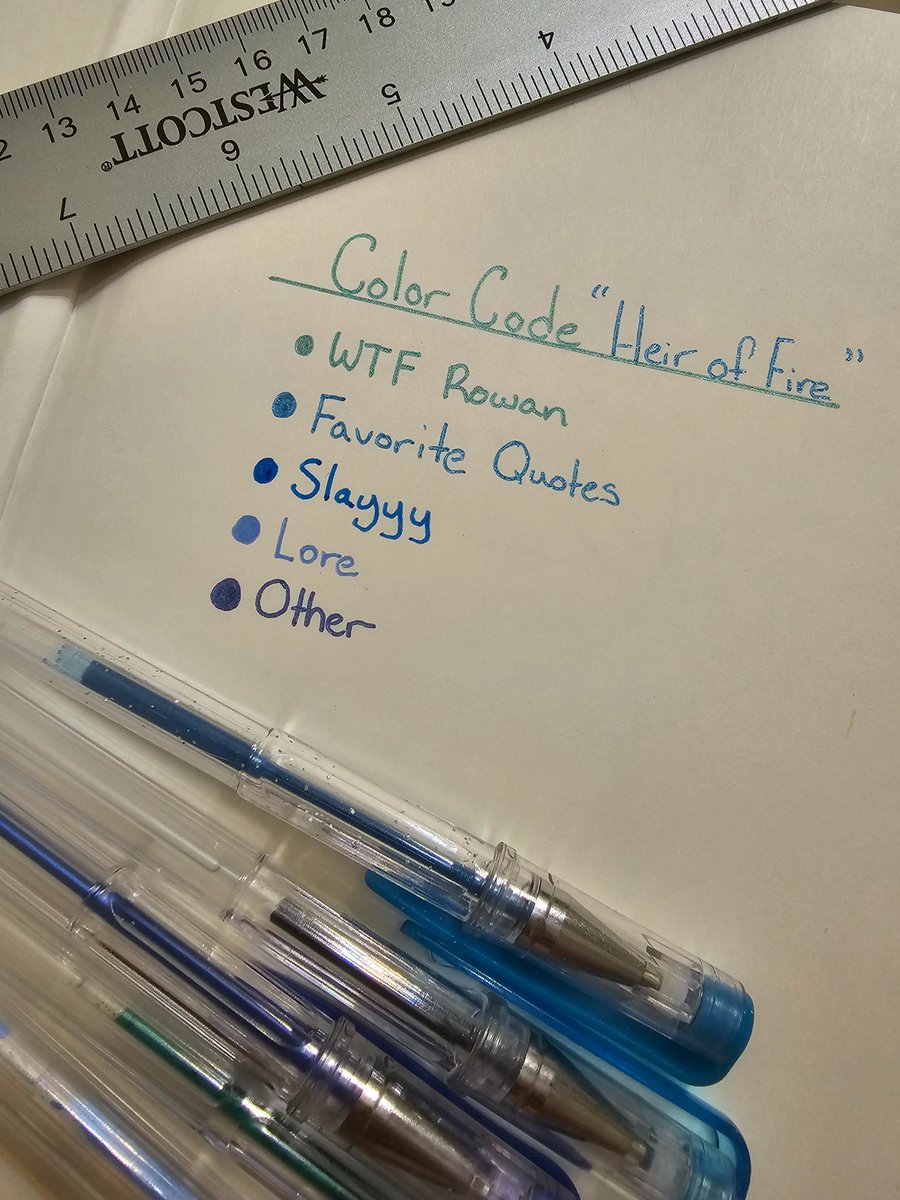 12 13 14 15 16 17 18 19
WESTCOTT®
7 6 5 4
Color Code "Heir of Fire"
WTF Rowan
Favorite Quotes
Slayyy
Lore
Other